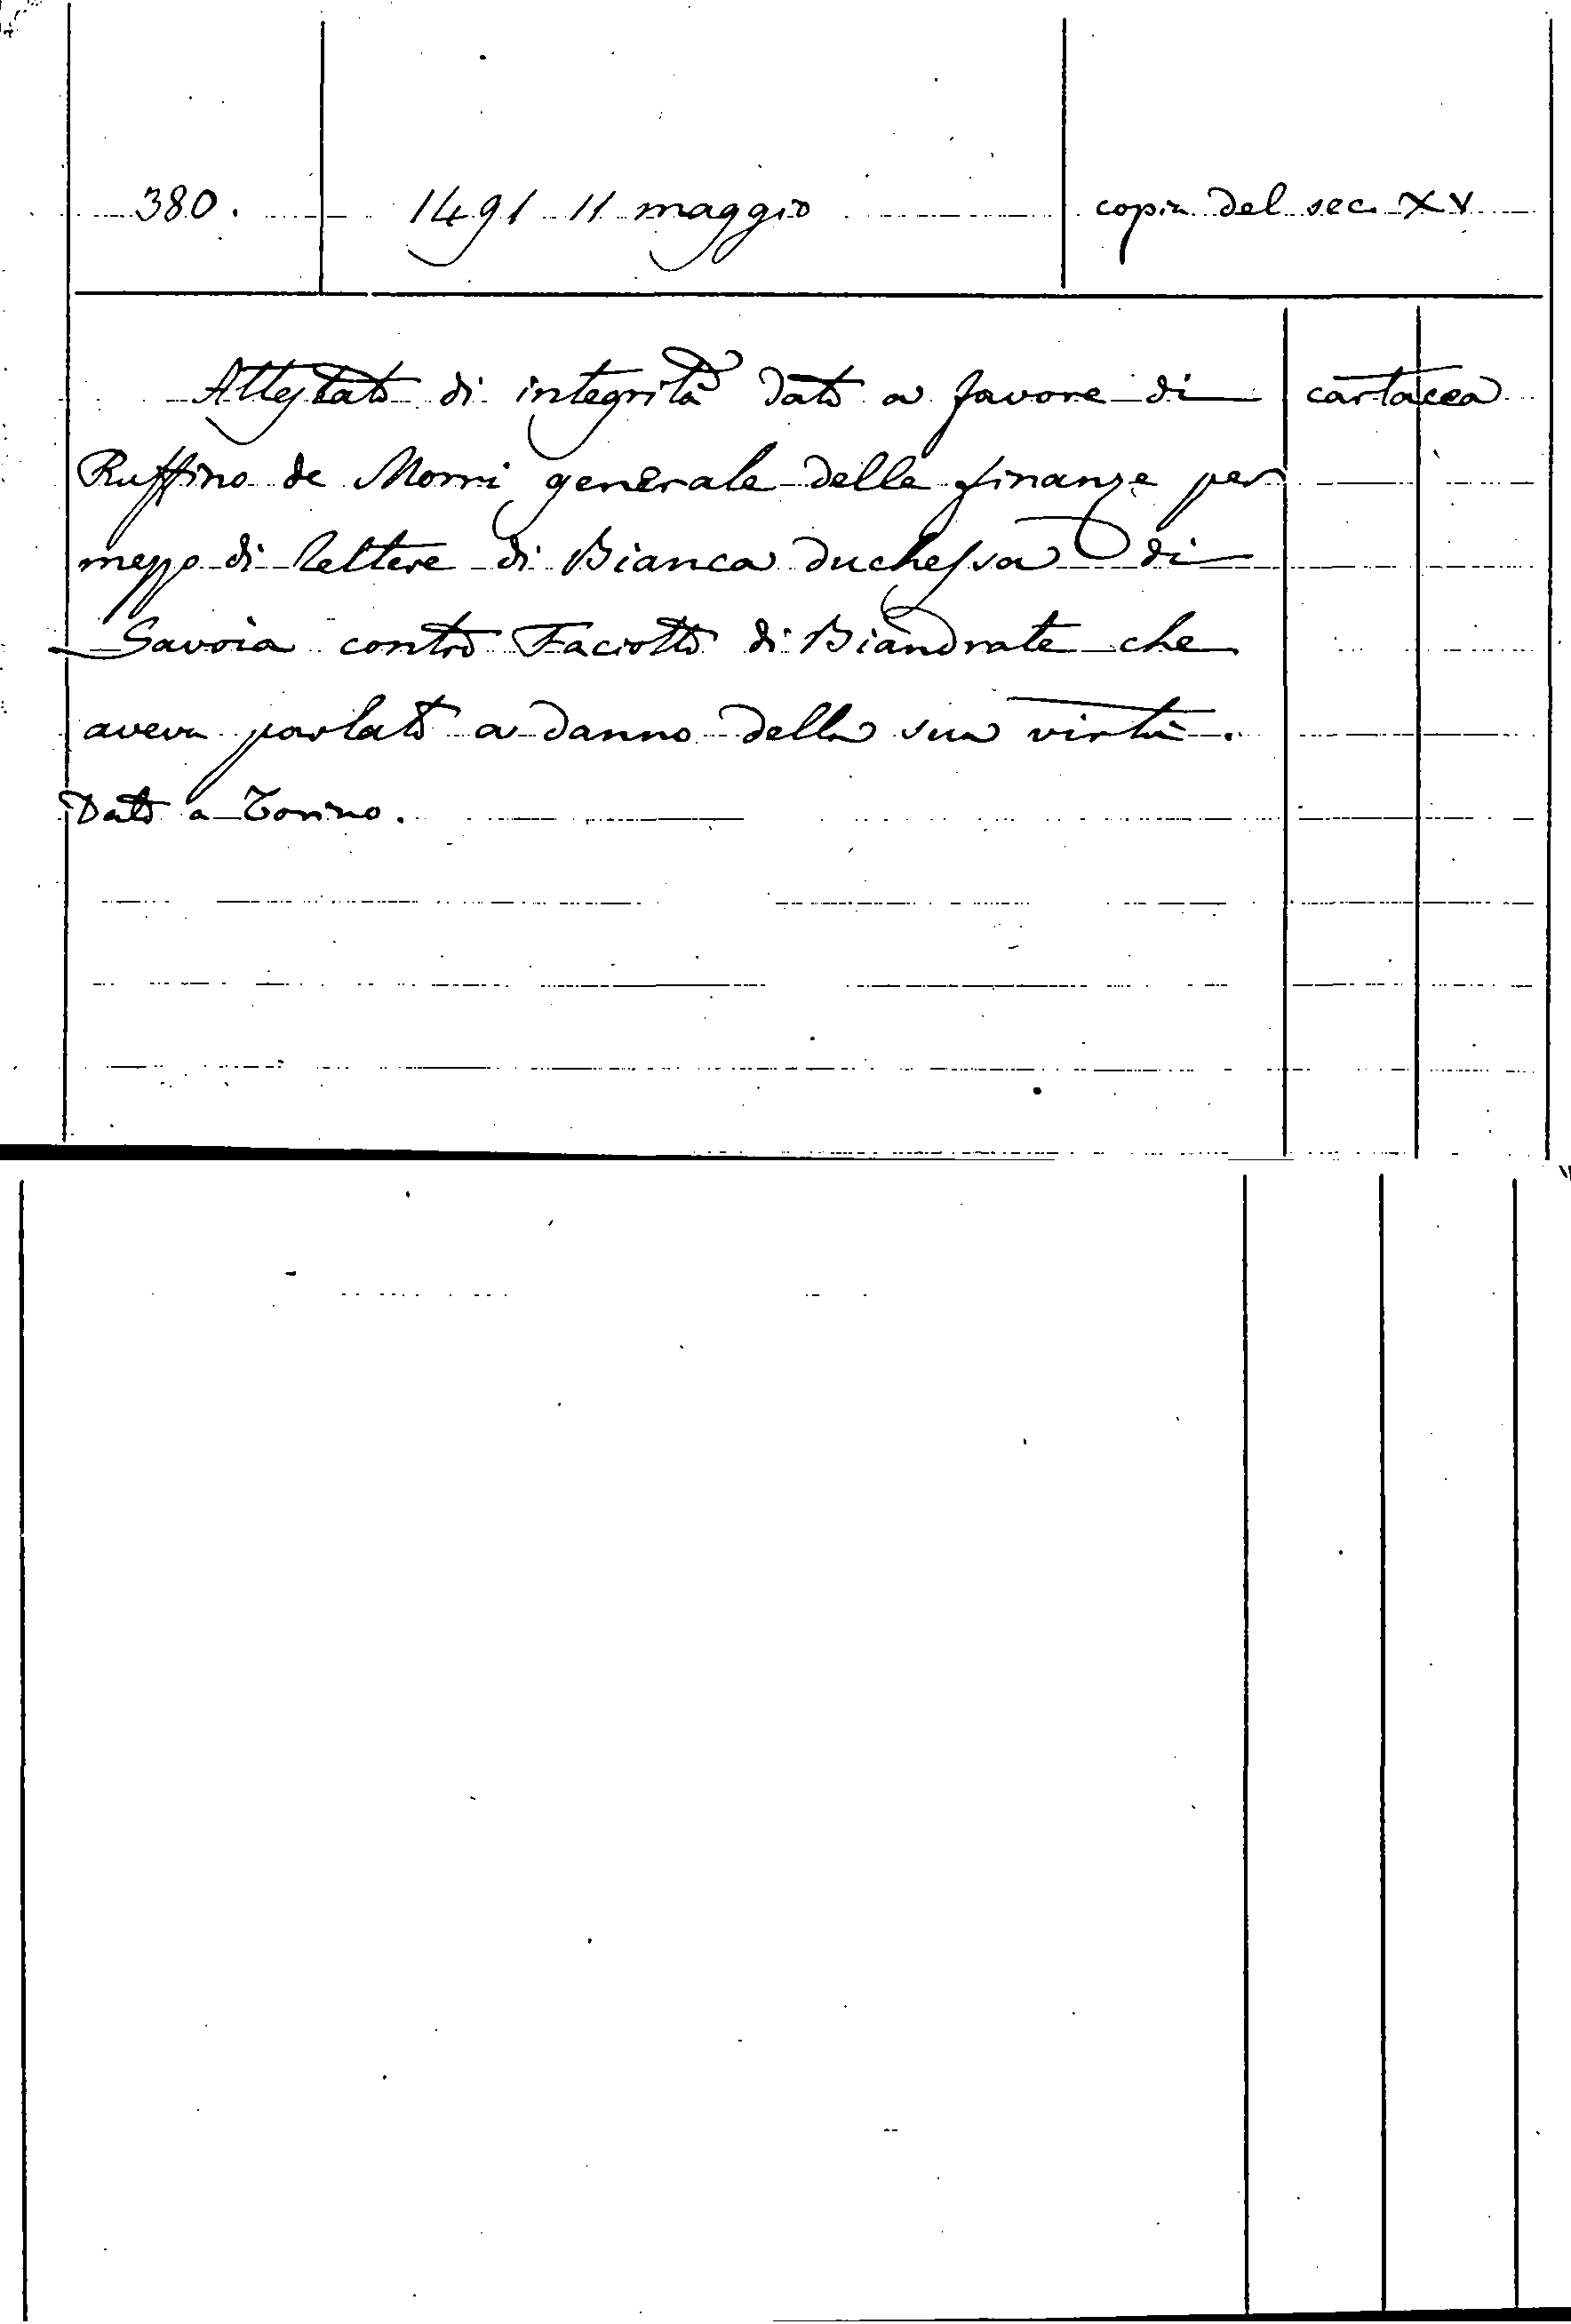 380. 1491 11 maggio copia del sec. XV
Attestato di integrità dato a favore di cartacea
Ruffino de Morri generale delle finanze per
mezzo di lettere di Bianca duchessa di
Savoia contro Faciotto di Biandrate che
aveva parlato a danno della sua virtù.
Dato a Torino.